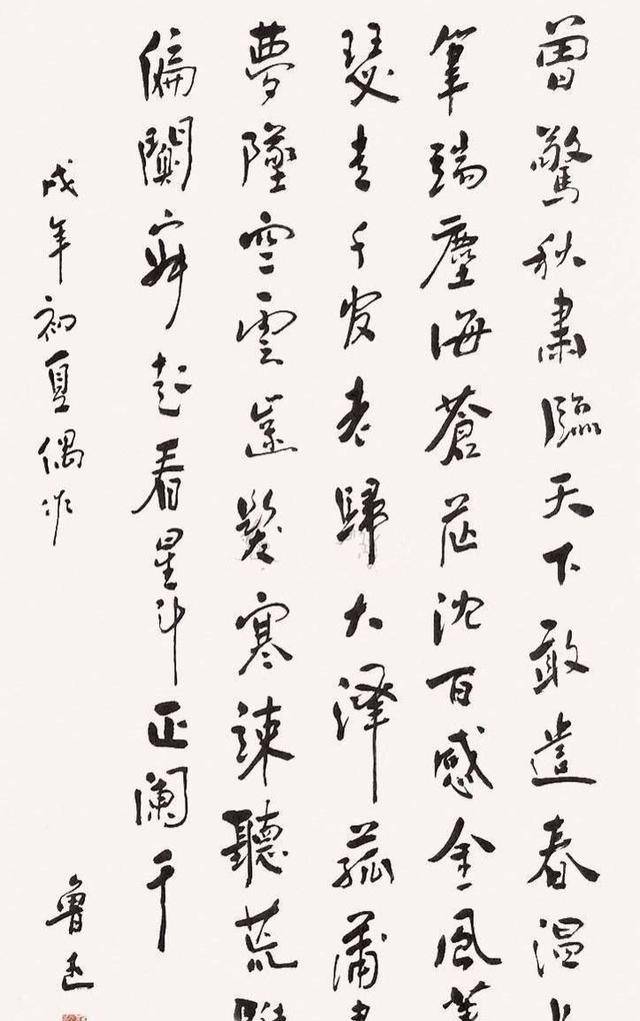 曾驚秋肅臨天下敢遣春溫
筆端塵海蒼茫沈百感金風
瑟走千官老歸大澤菰蒲
夢墜空雲齒髮寒竦聽荒
偏闃寂起看星斗正闌干
戌年初夏偶作
魯迅